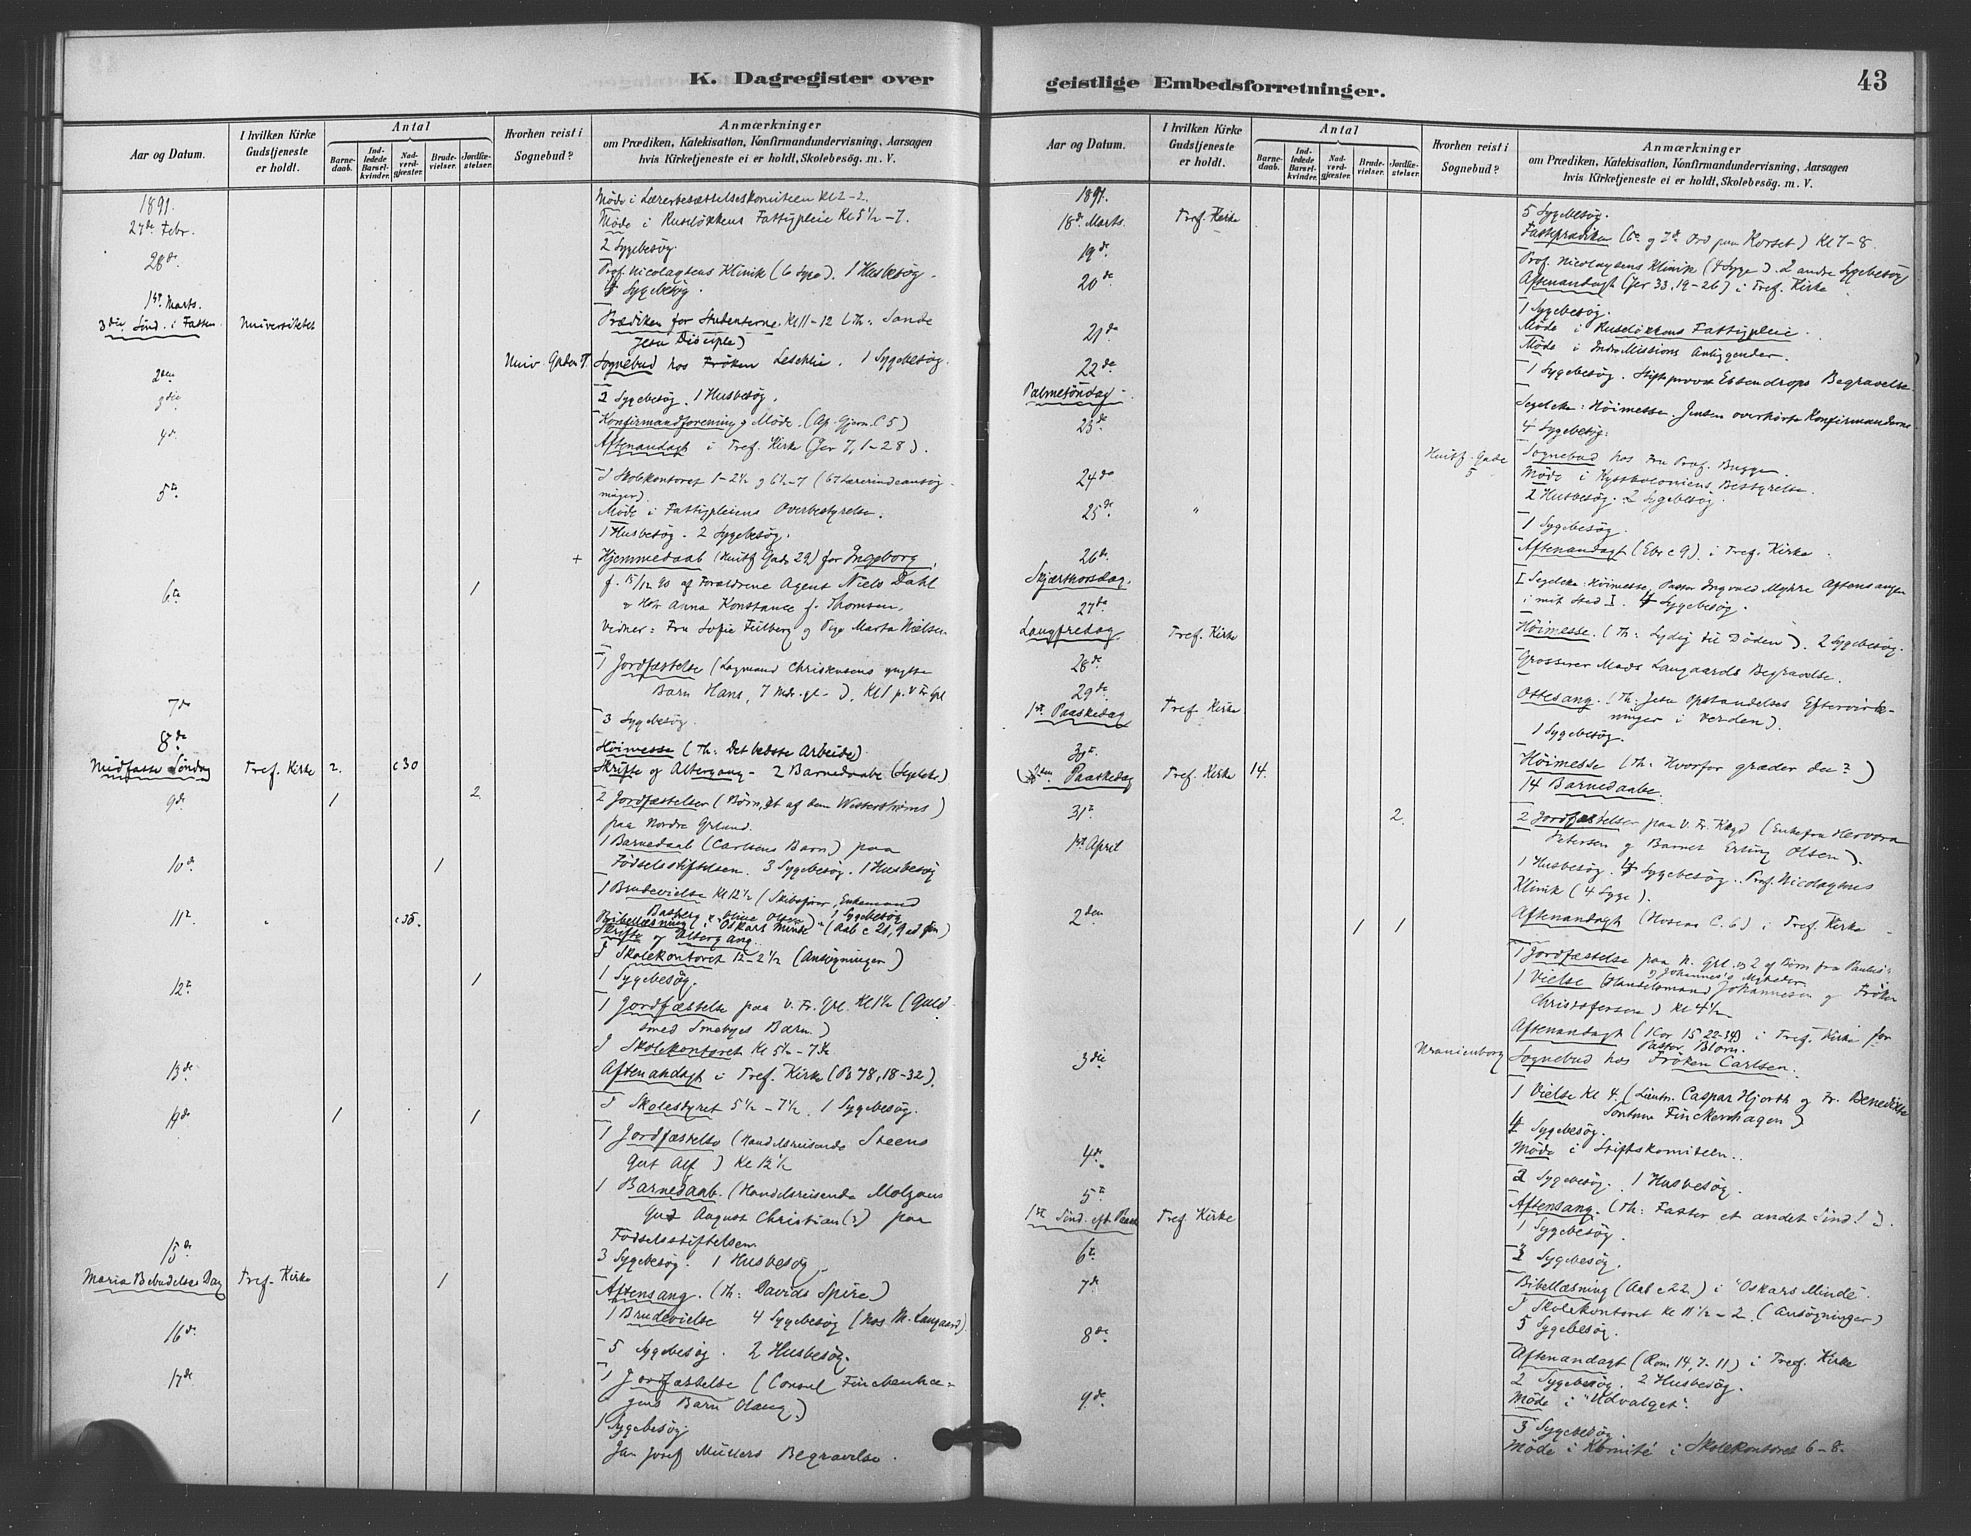 K. Dagregister over
Aar og Datum.
I hvilken Kirke Gudstjeneste er holdt.
Antal
Barnedaab.
Indledede Barselkvinder.
Nadverdgjæster.
Brudevielser.
Jordfæstelser.
Hvorhen reist i Sognebud?
Anmærkninger
om Prædiken, Katekisation, Konfirmandundervisning, Aarsagen
hvis Kirketjeneste ei er holdt, Skolebesøg. m. V.
1891.
27de Febr.
Møde i Kl 2-2.
Møde i Ruseløkkens Fattigpleie Kl 5½-7.
2 Sygebesøg.
28de
Prof. Nicolaysens Klinik (6 Syge). 1 Husbesøg.
4 Sygebesøg.
1ste Marts.
3die Sønd. i Fasten
Universitetet
Prædiken for Studenterne. Kl 11-12 (Th: Sande
Jesu Disciple)
2den
Sognebud hos Frøken. 1 Sygebesøg.
3die
2 Sygebesøg. 1 Husbesøg.
4de
Konfirmandforening Møde. (Ap. Gjern. C 5)
Aftenandagt i Tref. Kirke (Jer 7, 1-28).
5te
I Skolekontoret 1-2½ og 6½-7 (67 Lærerindeansøg-
ninger)
Møde i Fattigpleiens Overbestyrelse.
1 Husbesøg. 2 Sygebesøg.
6te
1
+ Hjemmedaab (Huitf Gade 29) for Ingeborg,
f. 15/12 90 af Forældrene Agent Niels Dahl
og Hstr Anna Konstance f. Thomsen.
Vidner: Fru Sofie og Pige Marta Nielsen
1 Jordfæstelse (Lagmand Christensens yngste
Barn Hans, 7 Mdr. gl-). Kl 1 p. V Fr Grl
7de
3 Sygebesøg.
8de
Midfaste Søndag
Tref. Kirke
2.
c 30
Høimesse (Th: Det bedste Arbeide)
Skrifte og Altergang - 2 Barnedaabe (Segelcke)
9de
1
2
2 Jordfæstelser (Børn, et af dem)
paa Nordre Grlund.
1 Barnedaab (Carlsens Barn) paa
10de
1
Fødselsstiftelsen. 3 Sygebesøg. 1 Husbesøg
1 Brudevielse Kl 12½ (Skibsfører, Enkemand
Olsen) 1 Sygebesøg
11te
"
c 35.
Bibellæsning i "Oskars Minde" (Aab c 21, 9)
Skrifte og Altergang.
I Skolekontoret 12-2½ (Ansøgninger)
12te
1
1 Sygebesøg.
1 Jordfæstelse paa V. Fr. Grl. Kl 1½ (Guld-
smed Smebyes Barn)
I Skolekontoret Kl 5½-7
13de
Aftenandagt i Tref. Kirke (Ps 78, 18-32).
14de
1
1
I Skolestyret 5½-7½. 1 Sygebesøg.
1 Jordfæstelse (Handelsreisende Steens
Gut Alf) Kl 12½
1 Barnedaab. (Handelsreisende
Gut August Christian (?) paa
Fødselsstiftelsen
15de
3 Sygebesøg. 1 Husbesøg
Maria Bebudelses Dag
Tref. Kirke
1
Aftensang. (Th: Davids Spire)
1 Brudevielse 4 Sygebesøg (hos M. Langaard).
16de
5 Sygebesøg. 2 Husbesøg.
17de
1 Jordfæstelse (Consul Finckenha-
gens Barn)
1 Sygebesøg
Jan Josef Müllers Begravelse.
geistlige Embedsforretninger.
43
Aar og Datum.
I hvilken Kirke Gudstjeneste er holdt.
Antal
Barnedaab.
Indledede Barselkvinder.
Nadverdgjæster.
Brudevielser.
Jordfæstelser.
Hvorhen reist i Sognebud?
Anmærkninger
om Prædiken, Katekisation, Konfirmandundervisning, Aarsagen
hvis Kirketjeneste ei er holdt, Skolebesøg. m. V.
1891.
18de Marts.
Tref. Kirke
5 Sygebesøg.
Fasteprædiken (6te og 7de Ord paa Korset) Kl 7-8.
19de
Prof. Nicolaysens Klinik (4 Syge). 2 andre Sygebesøg
20de
Aftenandagt (Jer 33, 19-26) i Tref. Kirke
1 Sygebesøg.
21de
Møde i Ruseløkkens Fattigpleie.
Møde i Indremissions Anliggender.
22de
1 Sygebesøg. Stiftsprovst Essendrops Begravelse
Palmesøndag
Segelcke: Høimesse. Jensen overhørte Konfirmanderne
23de
4 Sygebesøg.
Huitf. Gade 5
Sognebud hos Fru Prof. Bugge.
24de
Møde i Kystkoloniens Bestyrelse.
2 Husbesøg. 2 Sygebesøg.
25de
"
1 Sygebesøg.
Aftenandagt (Ebr c 9). i Tref. Kirke.
26de
Skjærthorsdag.
I Segelcke: Høimesse, Pastor Ingvald Myhre Aftensangen
i mit Sted I. 4 Sygebesøg.
27de
Langfredag
Tref. Kirke
Høimesse. (Th: Lydig til Døden). 2 Sygebesøg.
28de
Grosserer Mads Langaards Begravelse.
29de
1ste Paaskedag
Tref. Kirke
Ottesang. (Th: Jesu Opstandelses Eftervirk-
ninger i Verden).
1 Sygebesøg.
30te
(2den Paaskedag
Tref. Kirke
14.
Høimesse (Th: Hvorfor græder du?)
14 Barnedaabe.
31te
2.
2 Jordfæstelser paa V. Fr. (Enkefru
Petersen og Barnet Erling Olsen).
1ste April
1 Husbesøg. 4 Sygebesøg. Prof. Nicolaysens
Klinik (4 Syge).
2den
1
1
Aftenandagt (Hoseas C. 6) i Tref. Kirke -
1 Jordfæstelse paa N. Grl. og 2 af Børn fra Paulus's
og Johannes's Menigheder
1 Vielse (Handelsmand Johannesen og Frøken
Christofersen) Kl 4½
Aftenandagt (1 Cor 15, 22-34) i Tref. Kirke for
Pastor Blom.
3die
Uranienborg
Sognebud hos Frøken Carlsen.
1 Vielse Kl 4 (Lieutn. Caspar Hjorth og Fr. Benedikte
Finckenhagen)
4 Sygebesøg.
4de
Møde i Stiftskomiteen.
2 Sygebesøg. 1 Husbesøg.
5te
1ste Sønd. eft. Paaske
Tref. Kirke
Aftensang. (Th: Faster et andet Sind!).
1 Sygebesøg.
6te
2 Sygebesøg.
7de
Bibellæsning (Aab c 22.) i "Oskars Minde".
I Skolekontoret Kl 11½-2. (Ansøgninger)
5 Sygebesøg.
8de
Aftenandagt (Rom 14, 7-11) i Tref. Kirke
2 Sygebesøg. 2 Husbesøg.
9de
Møde i "Udvalget".
3 Sygebesøg.
Møde i Komité i Skolekontoret 6-8.